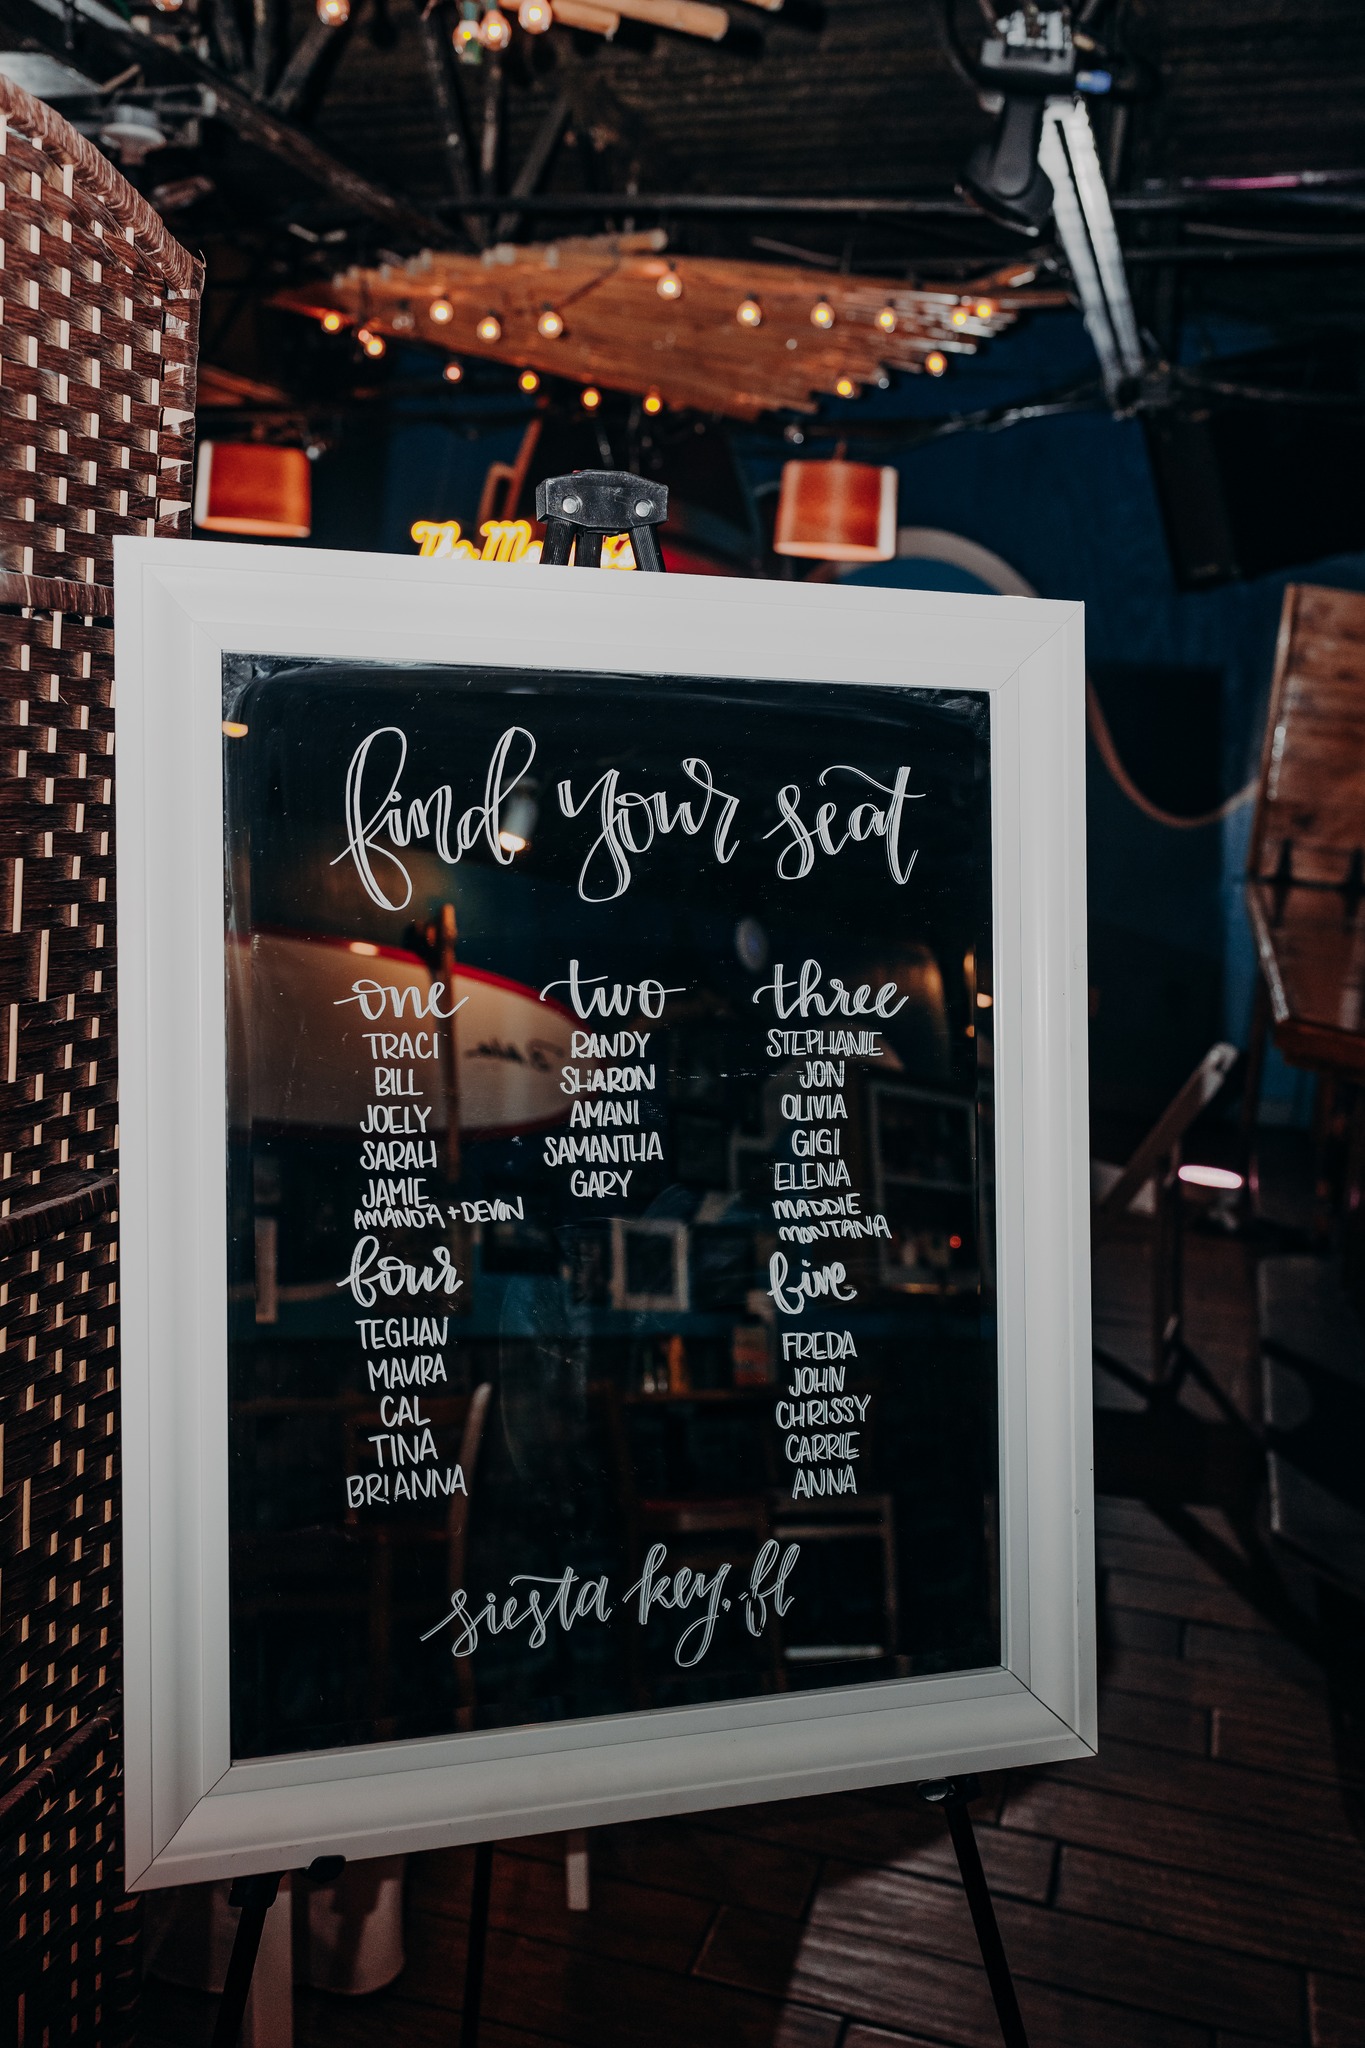 The
find your seat
one
TRACI
BILL
JOELY
SARAH
JAMIE
AMANDA + DEVON
two
RANDY
SHARON
AMANI
SAMANTHA
GARY
three
STEPHANIE
JON
OLIVIA
GIGI
ELENA
MADDIE
MONTANA
four
TEGHAN
MAURA
CAL
TINA
BRIANNA
five
FREDA
JOHN
CHRISSY
CARRIE
ANNA
siesta key, fl